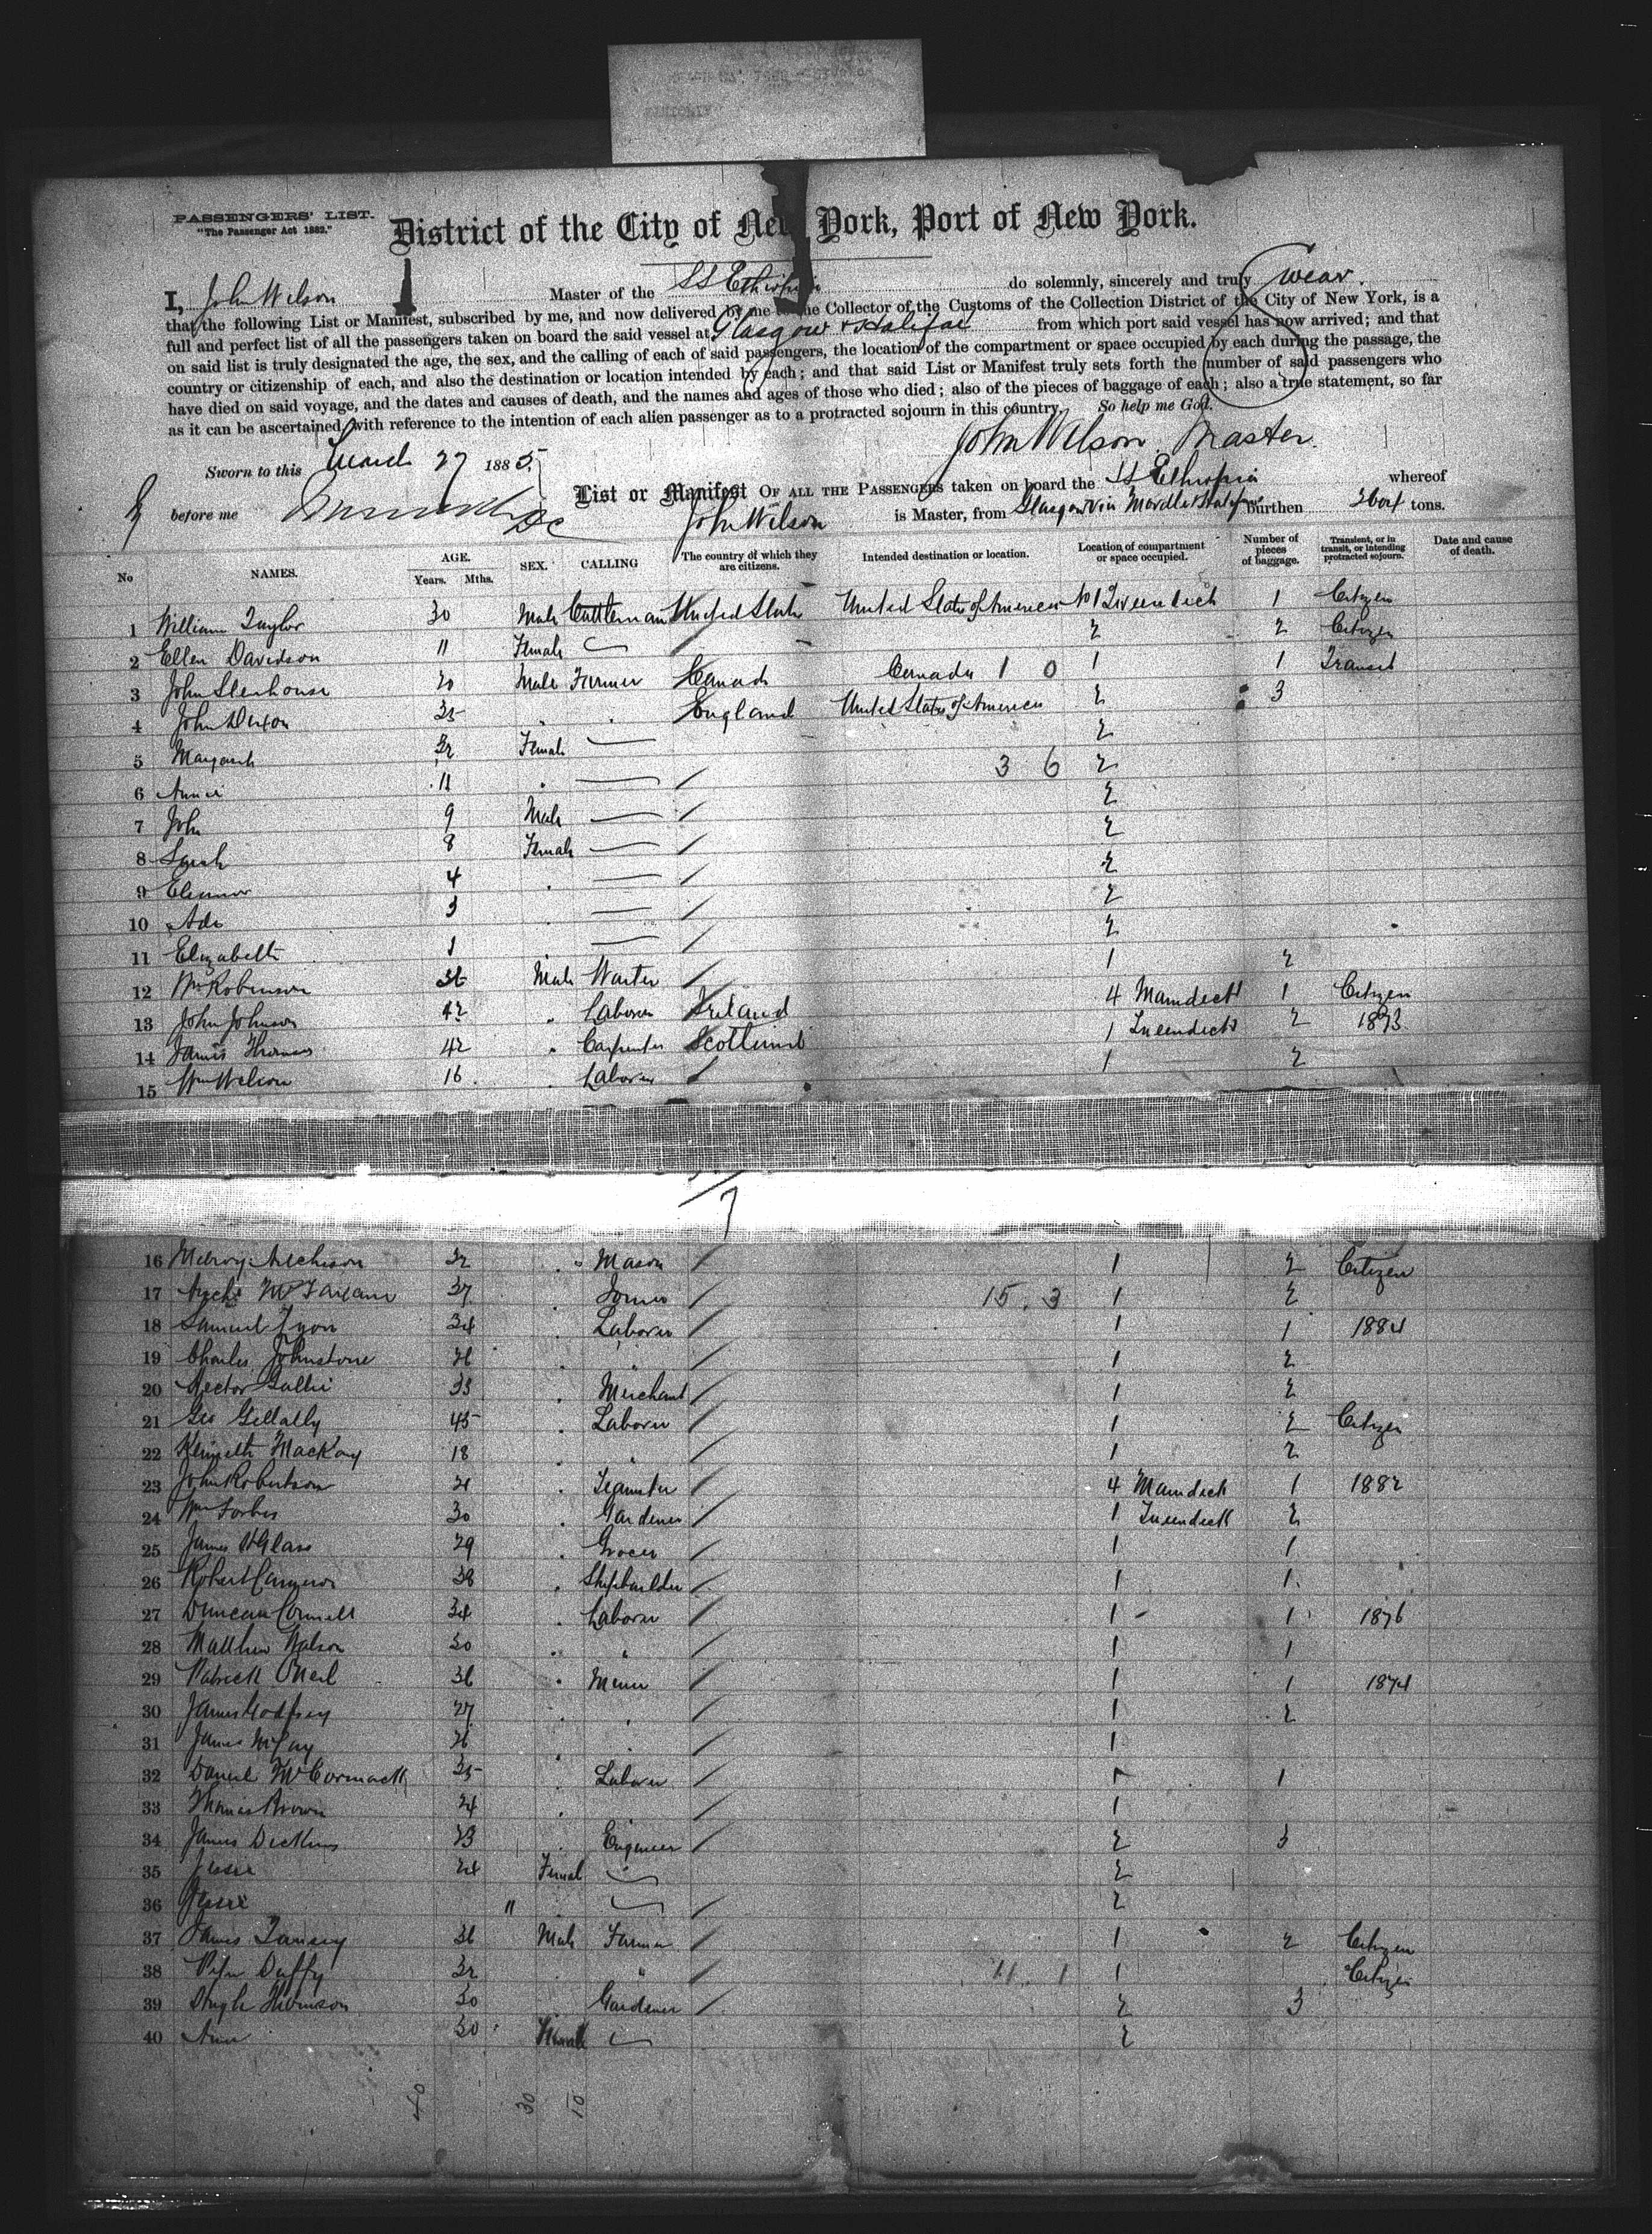 PASSENGERS' LIST.
"The Passenger Act 1882."
District of the City of New York, Port of New York.
I, John Wilson Master of the SS Ethiopia do solemnly, sincerely and truly swear
that the following List or Manifest, subscribed by me, and now delivered by me to the Collector of the Customs of the Collection District of the City of New York, is a
full and perfect list of all the passengers taken on board the said vessel at Glasgow & Halifax from which port said vessel has now arrived; and that
on said list is truly designated the age, the sex, and the calling of each of said passengers, the location of the compartment or space occupied by each during the passage, the
country or citizenship of each, and also the destination or location intended by each; and that said List or Manifest truly sets forth the number of said passengers who
have died on said voyage, and the dates and causes of death, and the names and ages of those who died; also of the pieces of baggage of each; also a true statement, so far
as it can be ascertained, with reference to the intention of each alien passenger as to a protracted sojourn in this country. So help me God.
John Wilson. Master.
Sworn to this March 27 1885
before me
List or Manifest OF ALL THE PASSENGERS taken on board the SS Ethiopia whereof
John Wilson is Master, from Glasgow via Burthen tons.
No NAMES. AGE. Years. Mths. SEX. CALLING The country of which they are citizens. Intended destination or location. Location of compartment or space occupied. Number of pieces of baggage. Transient, or in transit, or intending protracted sojourn. Date and cause of death.
1 William Taylor 30 Male Cattleman United States United States of America No 1 1 Citizen
2 Ellen Davidson 11 Female 2 2 Citizen
3 John Stenhouse 20 Male Farmer Canada Canada 1 0 1 1 Transit
4 John Dixon 35 England United States of America 2 3
5 Margaret 32 Female 2
6 Annie 11 3 6 2
7 John 9 Male 2
8 Sarah 8 Female 2
9 Eleanor 4 2
10 Ada 3 2
11 Elizabeth 1 2
12 Wm Robinson 36 Male Waiter 1 2
13 John Johnson 42 Laborer Ireland 4 Maindeck 1 Citizen
14 James Thomas 42 Carpenter Scotland 1 2 1873
15 Wm Wilson 16 Laborer 1 2
7
16 32 Mason 1 2 Citizen
17 37 15. 3 1 2
18 Samuel 34 Laborer 1 1 1884
19 Charles Johnstone 26 " 1 2
20 Hector 33 Merchant 1 2
21 Geo Gellatly 45 Laborer 1 2 Citizen
22 Kenneth MacKay 18 " 1 2
23 John Robertson 21 Teamster 4 Maindeck 1 1882
24 Wm Forbes 30 Gardener 1 2
25 James 29 Grocer 1 1
26 Robert Cameron 38 Shipbuilder 1 1
27 Duncan 34 Laborer 1 1 1876
28 Matthew Watson 30 " 1 1
29 Patrick O'Neil 36 Miner 1 1 1874
30 James Godfrey 27 " 1 2
31 James McCay 26 " 1
32 Daniel McCormack 35 Laborer 1 1
33 Thomas Brown 24 1
34 James 23 Engineer 2 3
35 Jessie 24 Female 2
36 Jessie 11 2
37 James 36 Male Farmer 1 2 Citizen
38 Peter Duffy 32 " 11. 1 1 Citizen
39 Hugh Thomson 30 Gardener 2 3
40 Ann 30 Female 2
40 30 10